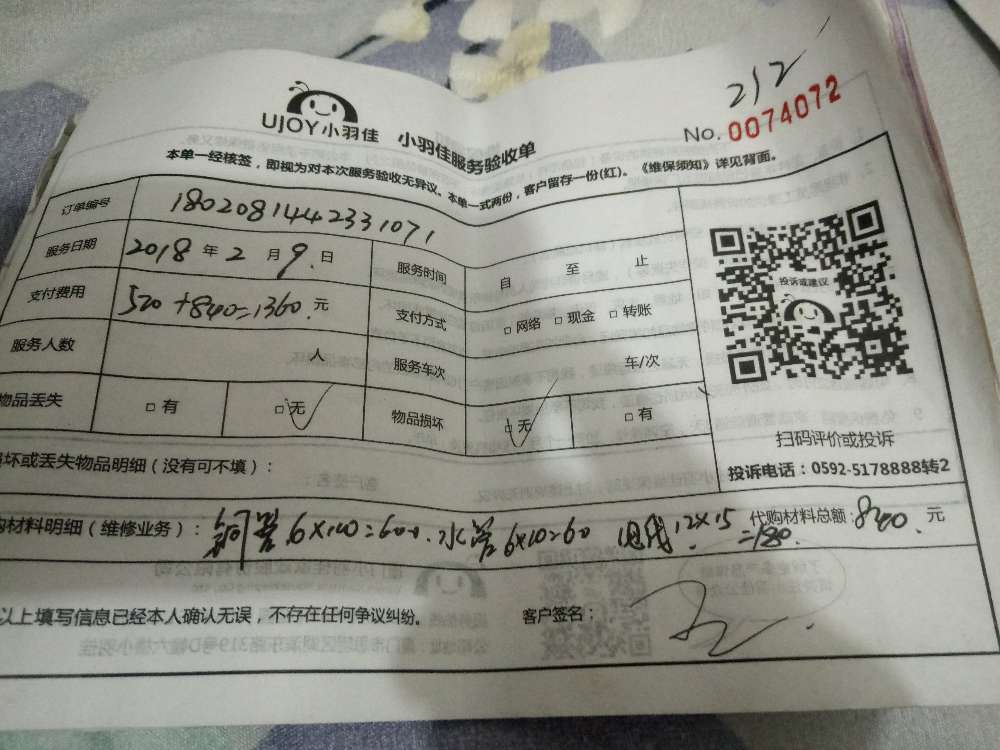 212
UJOY小羽佳 小羽佳服务验收单 No. 0074072
本单一经核签，即视为对本次服务验收无异议。本单一式两份，客户留存一份(红)。《维保须知》详见背面。
订单编号 1802081442331071
服务日期 2018 年 2 月 9 日 服务时间 自 至 止
支付费用 520+840=1360 元 支付方式 □ 网络 □ 现金 □ 转账
服务人数 人 服务车次 车/次
物品丢失 □ 有 □ 无 物品损坏 □ 无 □ 有
投诉或建议
扫码评价或投诉
投诉电话：0592-5178888转2
坏或丢失物品明细（没有可不填）：
购材料明细（维修业务）：铜管 6×100=600. 水管 6×10=60 电线 12×15=180. 代购材料总额：840 元
以上填写信息已经本人确认无误，不存在任何争议纠纷。 客户签名：